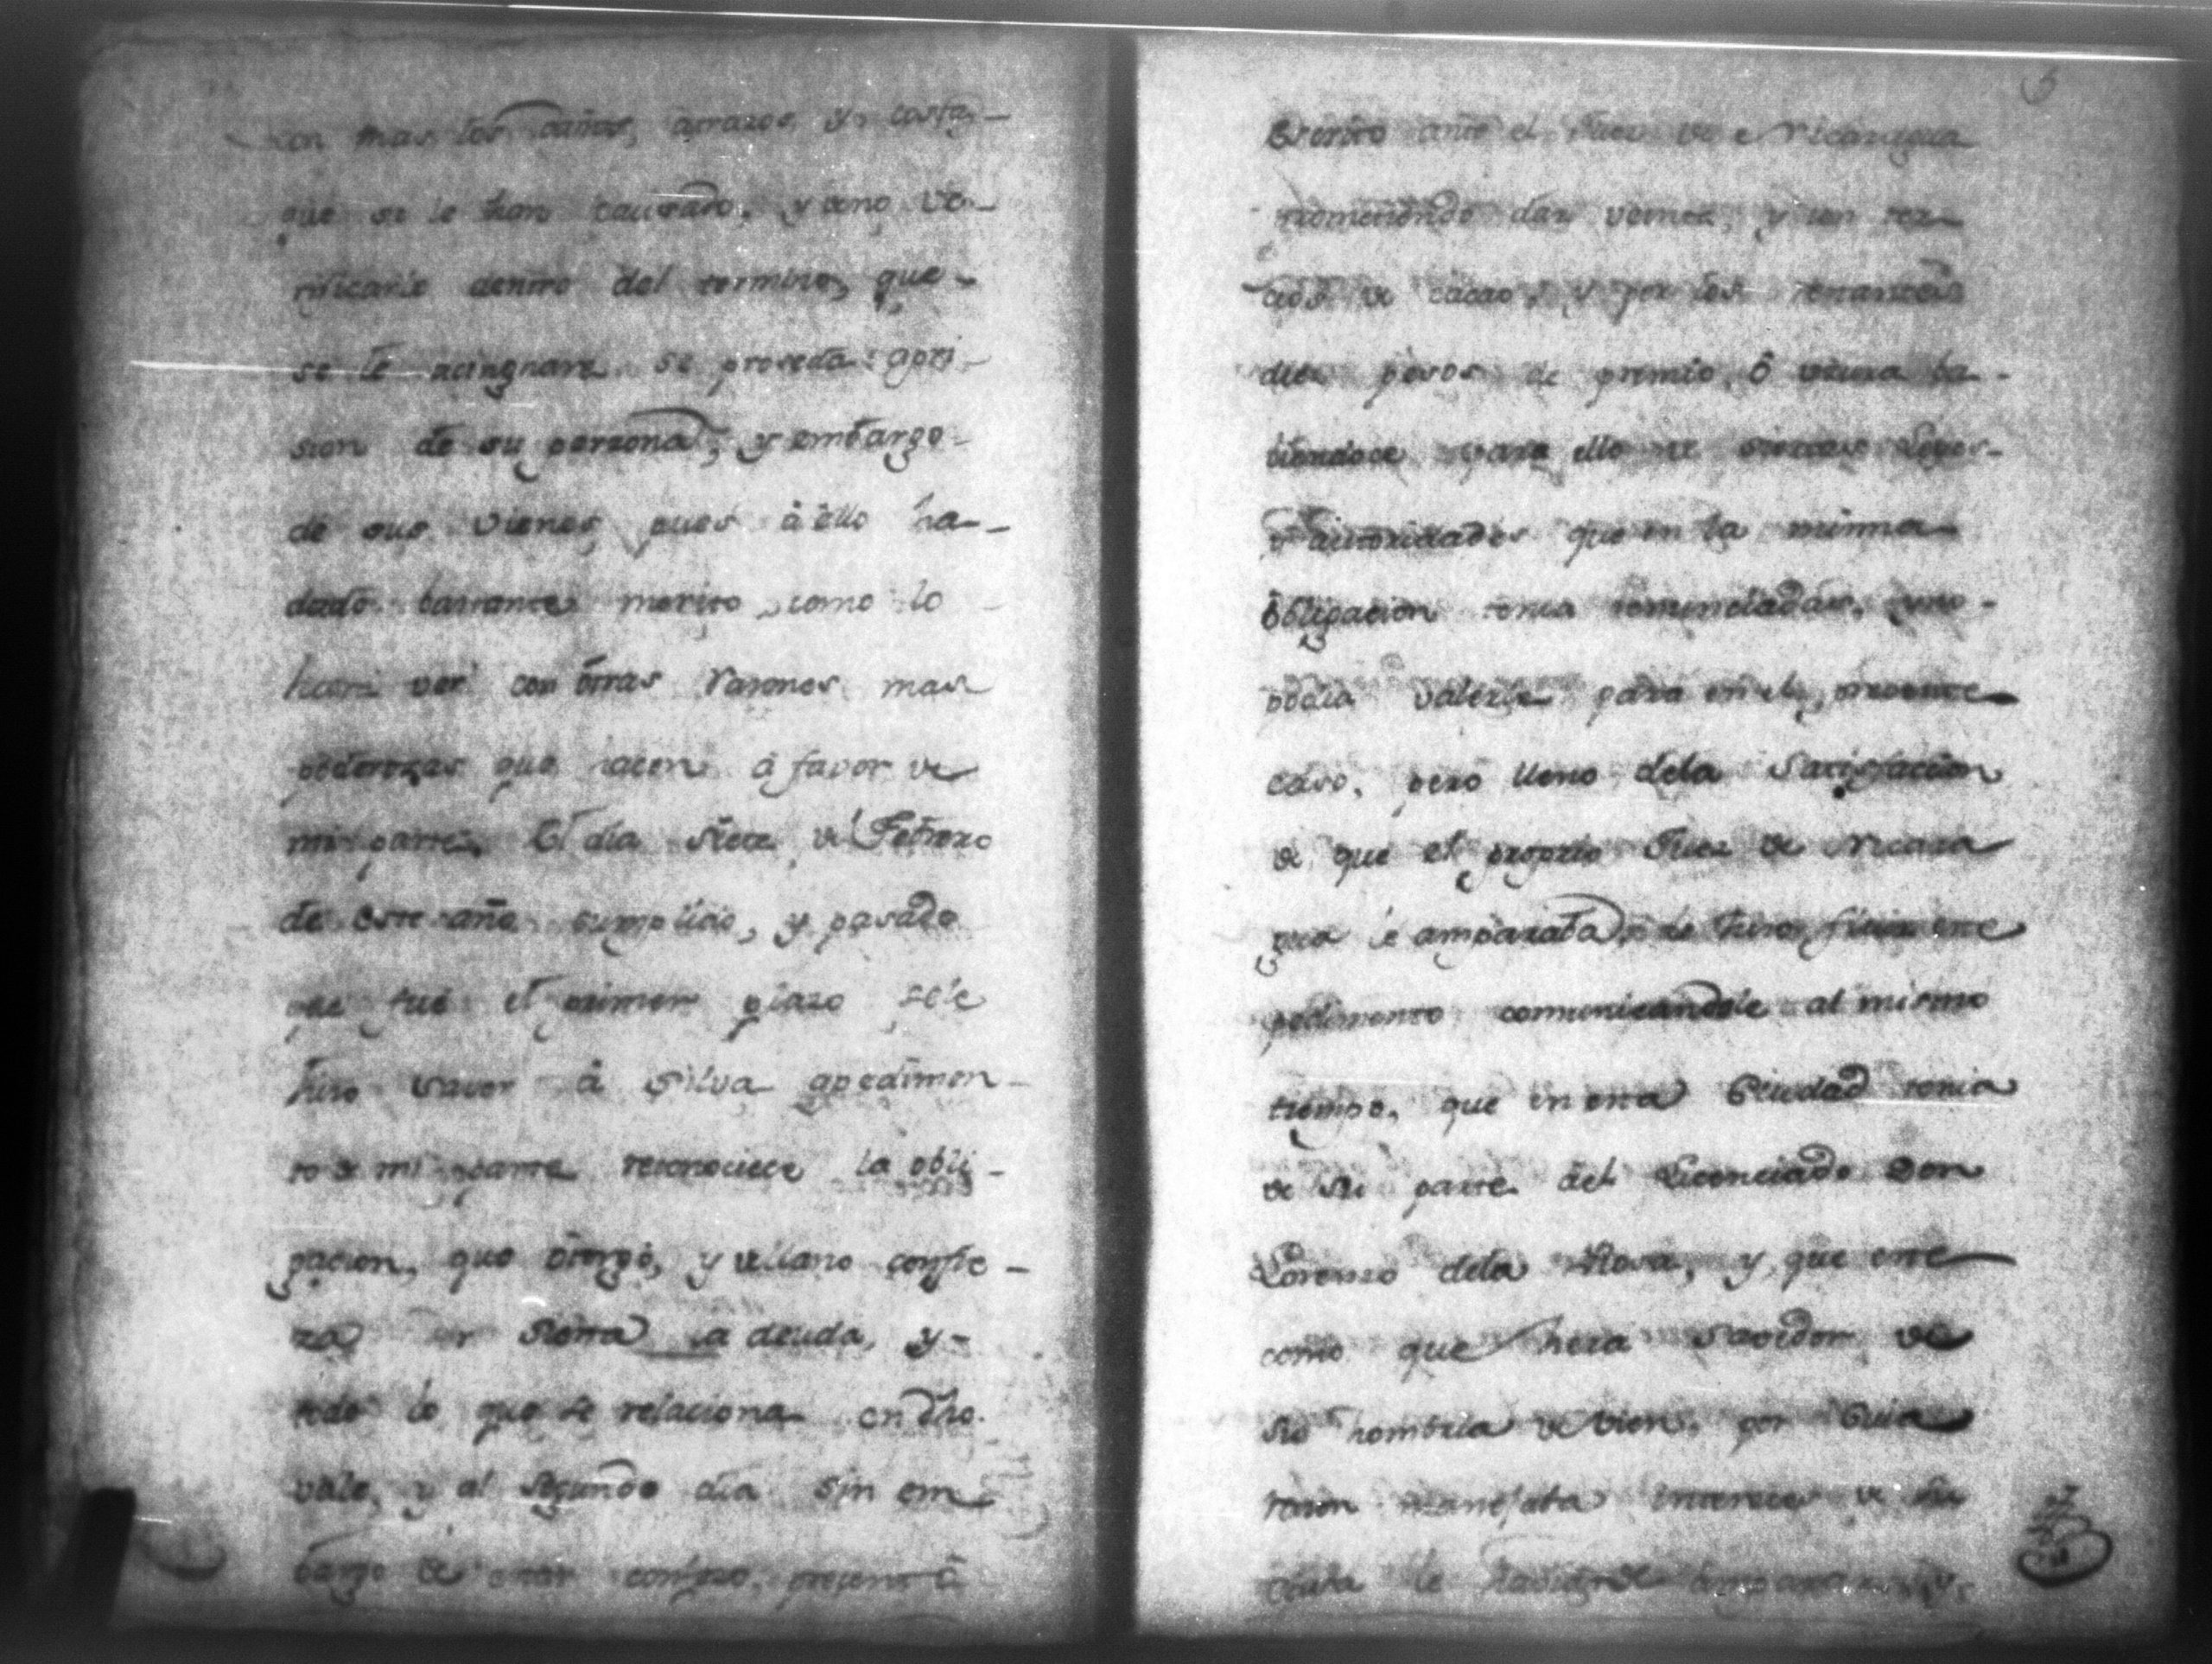 con mas los daños, atrazos, y costas
que se le han causado, y deno ve-
rificarlo dentro del termino, que
se le acingnare se proseda apri-
sion de su perzona, y embargo
de sus vienes, pues à ello ha-
dado bastante merito, como lo
hará ver con otras rasones mas
poderozas que hacen à favor de
mi parte. El dia siete de Febrero
de este año cumplido, y pasado
que fue el primer plazo sele
hizo saver à Silva apedimen-
to de mi parte reconociece la obli-
gacion, que otorgó, y dellano confie-
za ser sierta la deuda, y
todo lo que se relaciona en dho.
vale, y al segundo dia sin em-
bargo de estar confezo, presentó
Escrito ante el Juez de Nicaragua
prometiendo dar veinte, y un ter-
cios de cacao, y por los restantes
diez pesos de premio, ô usura ba-
liendoce para ello de siertas Leyes
y autoridades que en la misma
obligacion tenia renunciadas, y no
podia valerle para en el presente
caso, pero lleno dela satisfaccion
de que el proprio Juez de Nicara
gua le amparaba, le hizo
pedimento comunicandole al mismo
tiempo, que en esta Ciudad tenia
de su parte del Licenciado Don
Lorenzo dela Rosa, y que este
como que hera savedor de
su hombria de vien, por cuia
razon manejaba intereces de